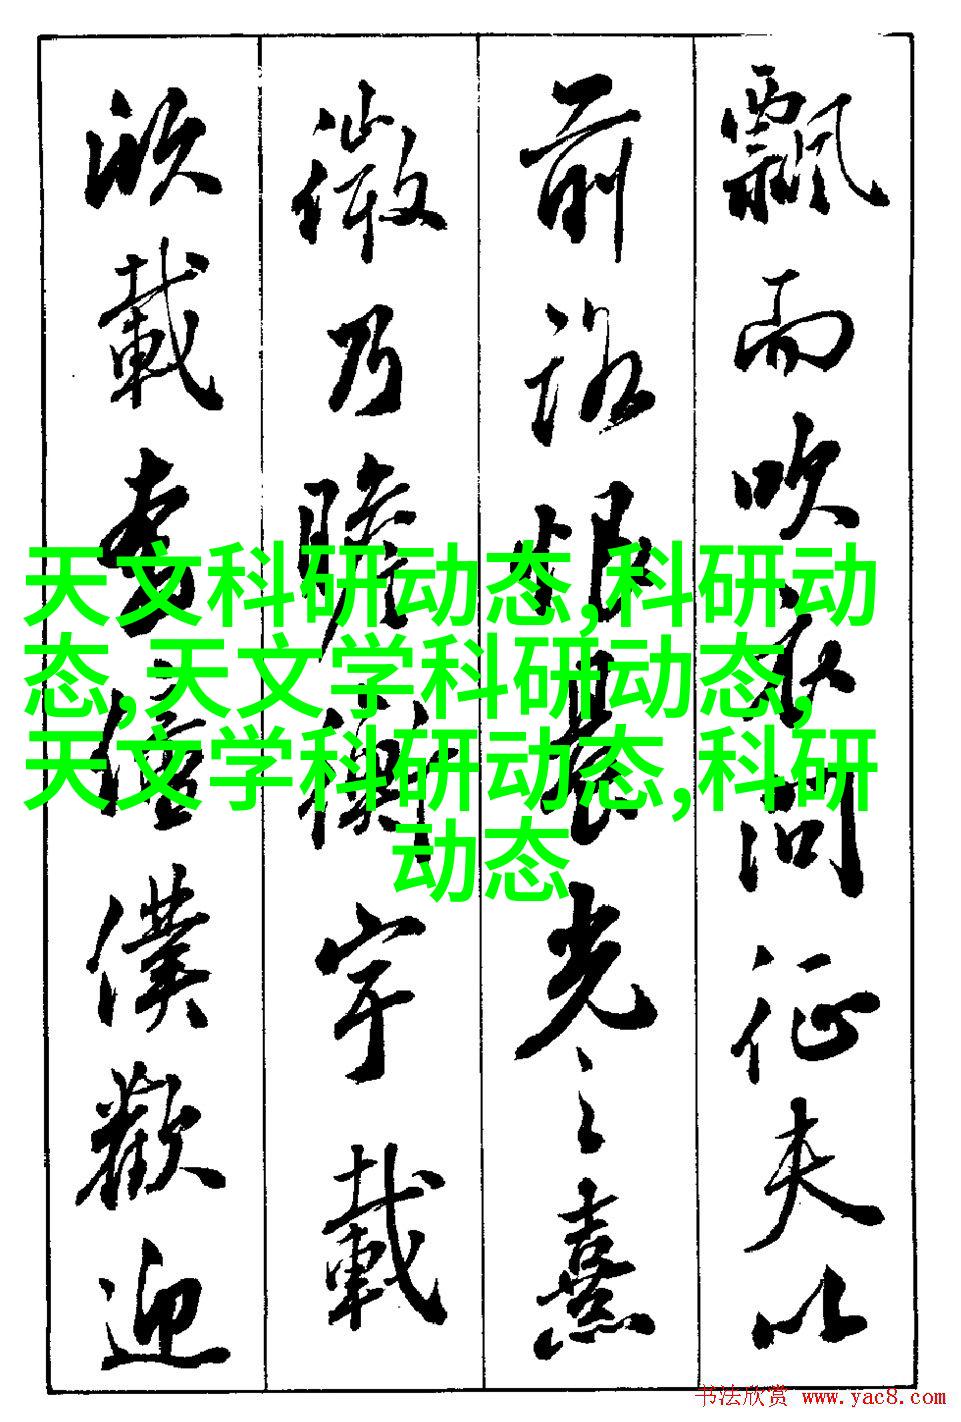 飄而吹衣問征夫以
前路恨晨光之熹
微乃瞻衡宇載
欣載奔僮僕歡迎
天文科研动态,科研动
态,天文学科研动态,
天文学科研动态,科研
动态
书法欣赏 www.yac8.com